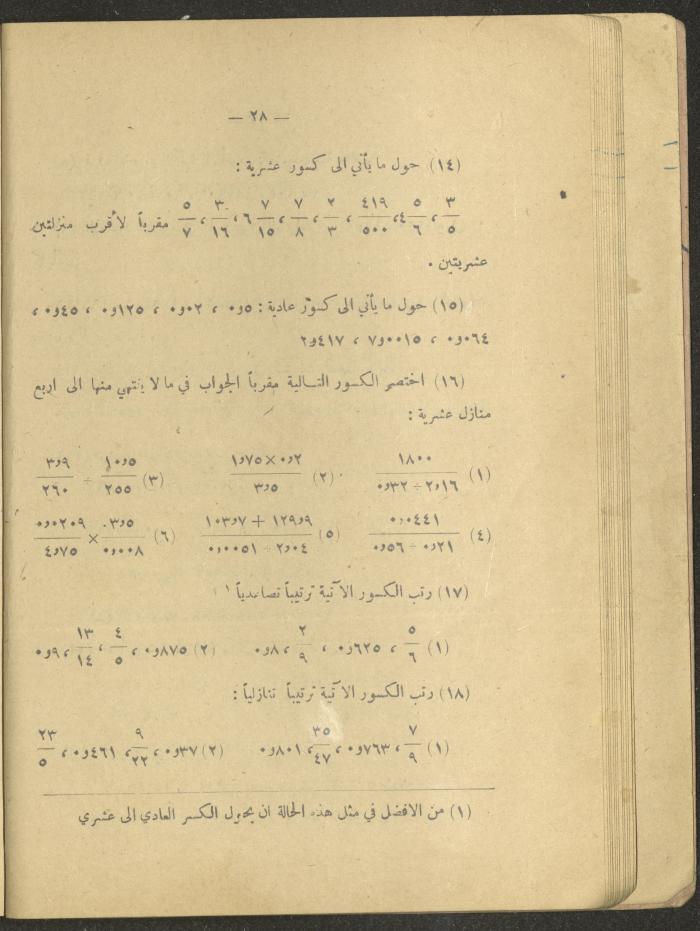 — ٢٨ —
(١٤) حول ما يأتي الى كسور عشرية :
٣/٥ ، ٥/٦ ، ٤ ٤١٩/٥٠٠ ، ٢/٣ ، ٧/٨ ، ٧/١٥ ٦ ، ٣/١٦ ، ٥/٧ مقرباً لأقرب منزلتين
عشريتين .
(١٥) حول ما يأتي الى كسور عادية : ٥و٠ ، ٠٢و٠ ، ١٢٥و٠ ، ٤٥و٠ ،
٠٦٤و٠ ، ٠٠١٥و٧ ، ٤١٧و٢
(١٦) اختصر الكسور التالية مقرباً الجواب في ما لا ينتهي منها الى اربع
منازل عشرية :
(١) ١٨٠٠ / ٢و١٦ ÷ ٠و٣٢ (٢) ٠و٢ × ١و٧٥ / ٣و٥ (٣) ١٠و٥ / ٢٥٥ ÷ ٣و٩ / ٢٦٠
(٤) ٠و٠٤٤١ / ٠و٢١ ÷ ٠و٥٦ (٥) ١٢٩و٩ + ١٠٣و٧ / ٢و٠٤ ÷ ٠و٠٠٥١ (٦) ٣و٥ / ٠و٠٠٨ × ٠و٠٢٠٩ / ٤و٧٥
(١٧) رتب الكسور الآتية ترتيباً تصاعدياً ١
(١) ٥/٦ ، ٠و٦٢٥ ، ٢/٩ ، ٠و٨ (٢) ٠و٨٧٥ ، ٤/٥ ، ١٣/١٤ ، ٠و٩
(١٨) رتب الكسور الآتية ترتيباً تنازلياً :
(١) ٧/٩ ، ٠و٧٦٣ ، ٣٥/٤٧ ، ٠و٨٠١ (٢) ٠و٣٧ ، ٩/٢٢ ، ٠و٤٦١ ، ٢٣/٥
(١) من الافضل في مثل هذه الحالة ان يحول الكسر العادي الى عشري